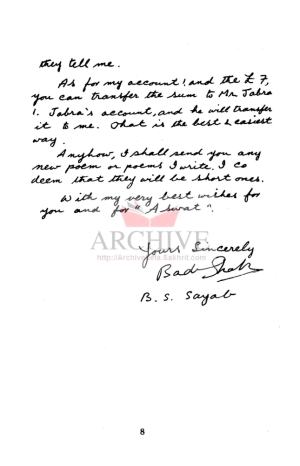 they tell me.
As for my account, and the £ 7,
you can transfer the sum to Mr. Jabra
I. Jabra's account, and he will transfer
it to me. That is the best & easiest
way.
Anyhow, I shall send you any
new poem or poems I write, I co
deem that they will be short ones.
With my very best wishes for
you and for "Aswat".
ARCHIVE
Yours Sincerely
Badr Shakir
B. S. Sayab
8